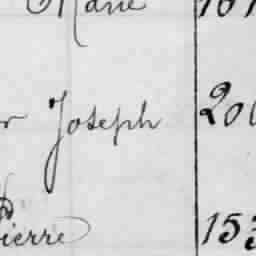 Marie 101
r Joseph 200
Pierre 153